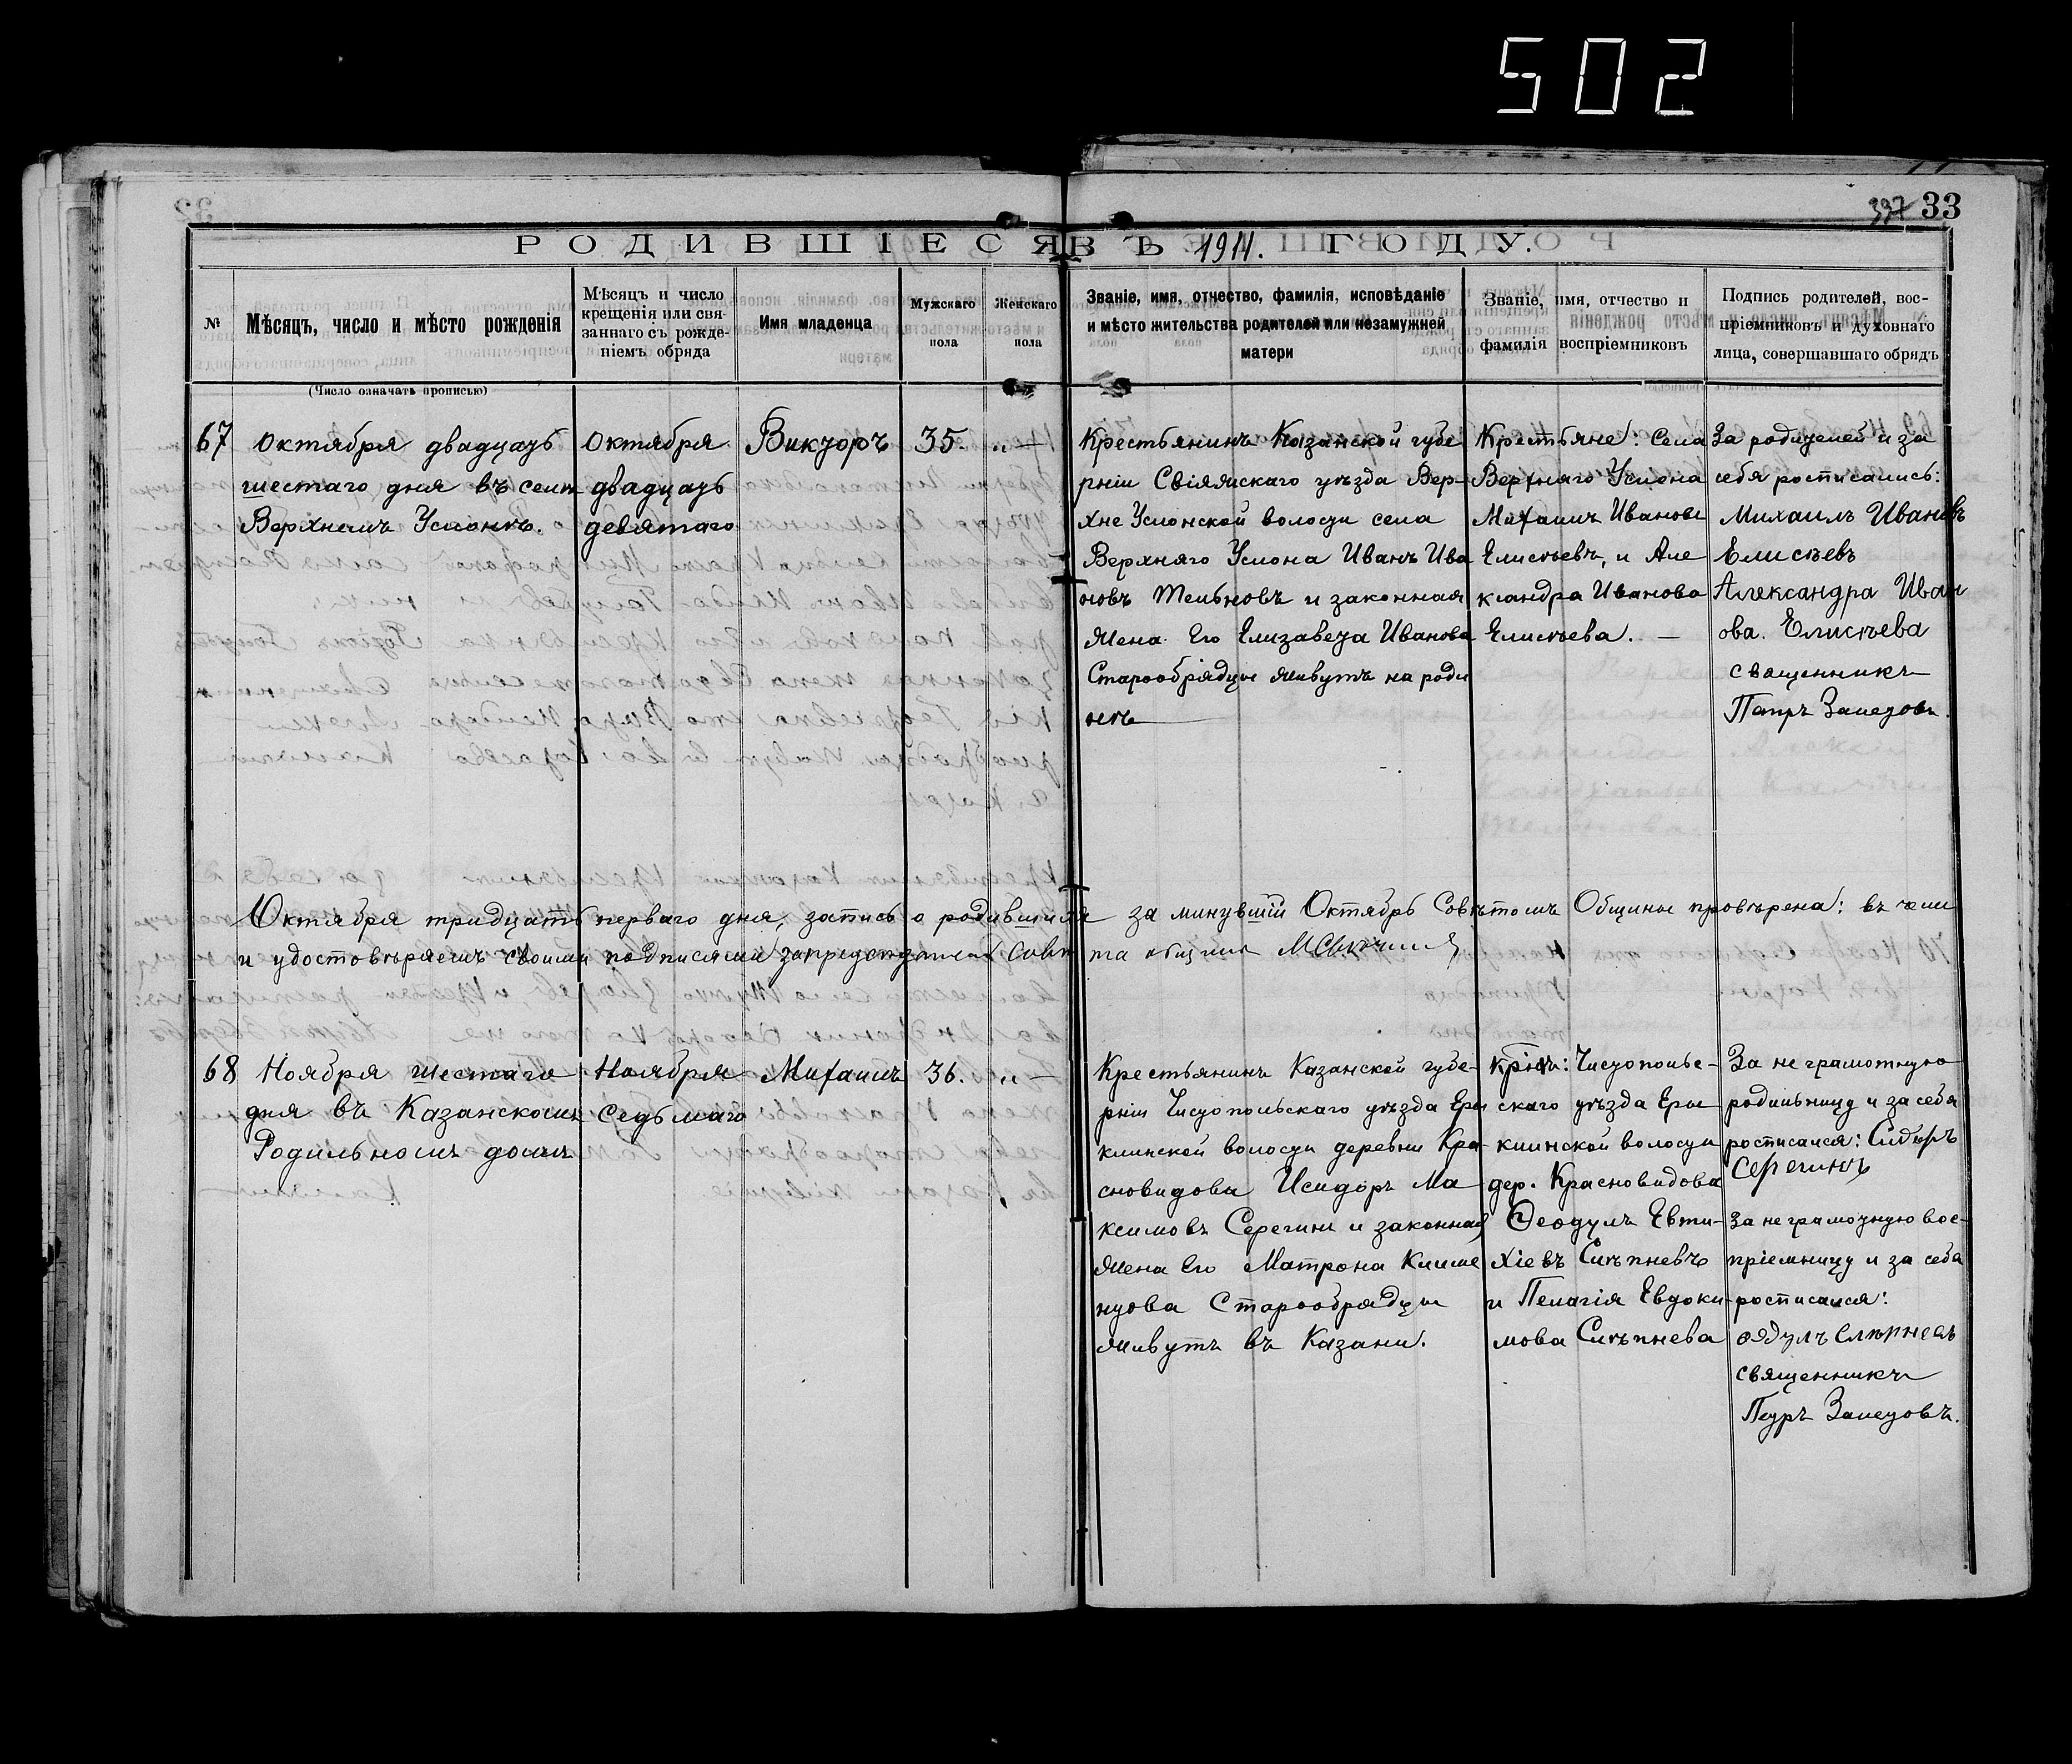 502
337 33
РОДИВШІЕСЯ ВЪ 1911. ГОДУ.
№
Мѣсяцъ, число и мѣсто рожденія
Мѣсяцъ и число
крещенія или свя-
заннаго съ рожде-
ніемъ обряда
Имя младенца
Мужскаго
пола
Женскаго
пола
Званіе, имя, отчество, фамилія, исповѣданіе
и мѣсто жительства родителей или незамужней
матери
Званіе, имя, отчество и
фамилія воспріемниковъ
Подпись родителей, вос-
пріемниковъ и духовнаго
лица, совершавшаго обрядъ
(Число означать прописью)
67
Октября двадцать
шестаго дня въ селѣ
Верхнемъ Услонѣ.
Октября
двадцать
девятаго
Викторъ
35.
„ —
Крестьянинъ Казанской губе
рніи Свіяжскаго уѣзда Вер-
хне Услонской волости села
Верхняго Услона Иванъ Ива
новъ и законная
жена его Елизавета Иванова
Старообрядцы живутъ на роди
нѣ
Крестьяне: села
Верхняго Услона
Михаилъ Ивановъ
Елисѣевъ, и Але
ксандра Иванова
Елисѣева. —
За родителей и за
себя росписались:
Михаилъ Ивановъ
Елисѣевъ
Александра Иван
ова. Елисѣева
священникъ
Петръ Залетовъ.
Октября тридцать перваго дня, запись о родившихся за минувшій Октябрь Совѣтомъ Общины провѣрена: въ чемъ
и удостовѣряемъ своими подписями за предсѣдателя Совѣ та общины
68
Ноября шестаго
дня въ Казанскомъ
Родильномъ домѣ
Ноября
Седьмаго
Михаилъ
36.
„ —
Крестьянинъ Казанской губе-
рніи Чистопольскаго уѣзда Еры
клинской волости деревни Кра-
сновидова Исидоръ Ма
ксимовъ Серегинъ и законная
жена его Матрона Климе
нтова Старообрядцы
живутъ въ Казани.
Кр-нъ: Чистополь-
скаго уѣзда Еры
клинской волости
дер. Красновидова
Ѳеодулъ Евти-
хіевъ Слѣпневъ
и Пелагія Евдоки-
мова Слѣпнева
За не грамотную
родильницу и за себя
росписался: Сидоръ
Серегинъ
За не грамотную вос-
пріемницу и за себя
росписался:
Ѳядулъ Слюпневъ
священникъ
Петръ Залетовъ.